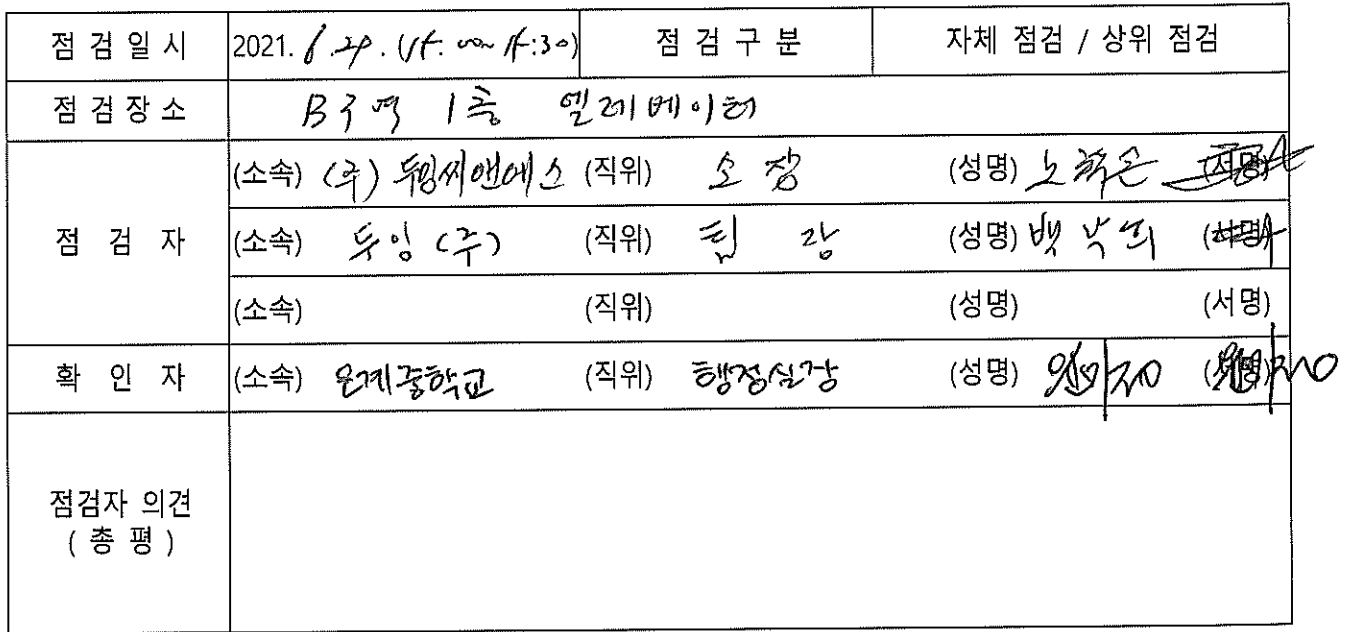 점 검 일 시 2021. 6. 29. (15:00~15:30) 점 검 구 분 자체 점검 / 상위 점검
점 검 장 소 B구역 1층 엘레베이터
(소속) (주) 두잉씨앤에스 (직위) 소장 (성명) (서명)
점 검 자 (소속) 두잉 (주) (직위) 팀장 (성명) 백낙희 (서명)
(소속) (직위) (성명) (서명)
확 인 자 (소속) 온계중학교 (직위) 행정실장 (성명) (서명)
점검자 의견
( 총 평 )